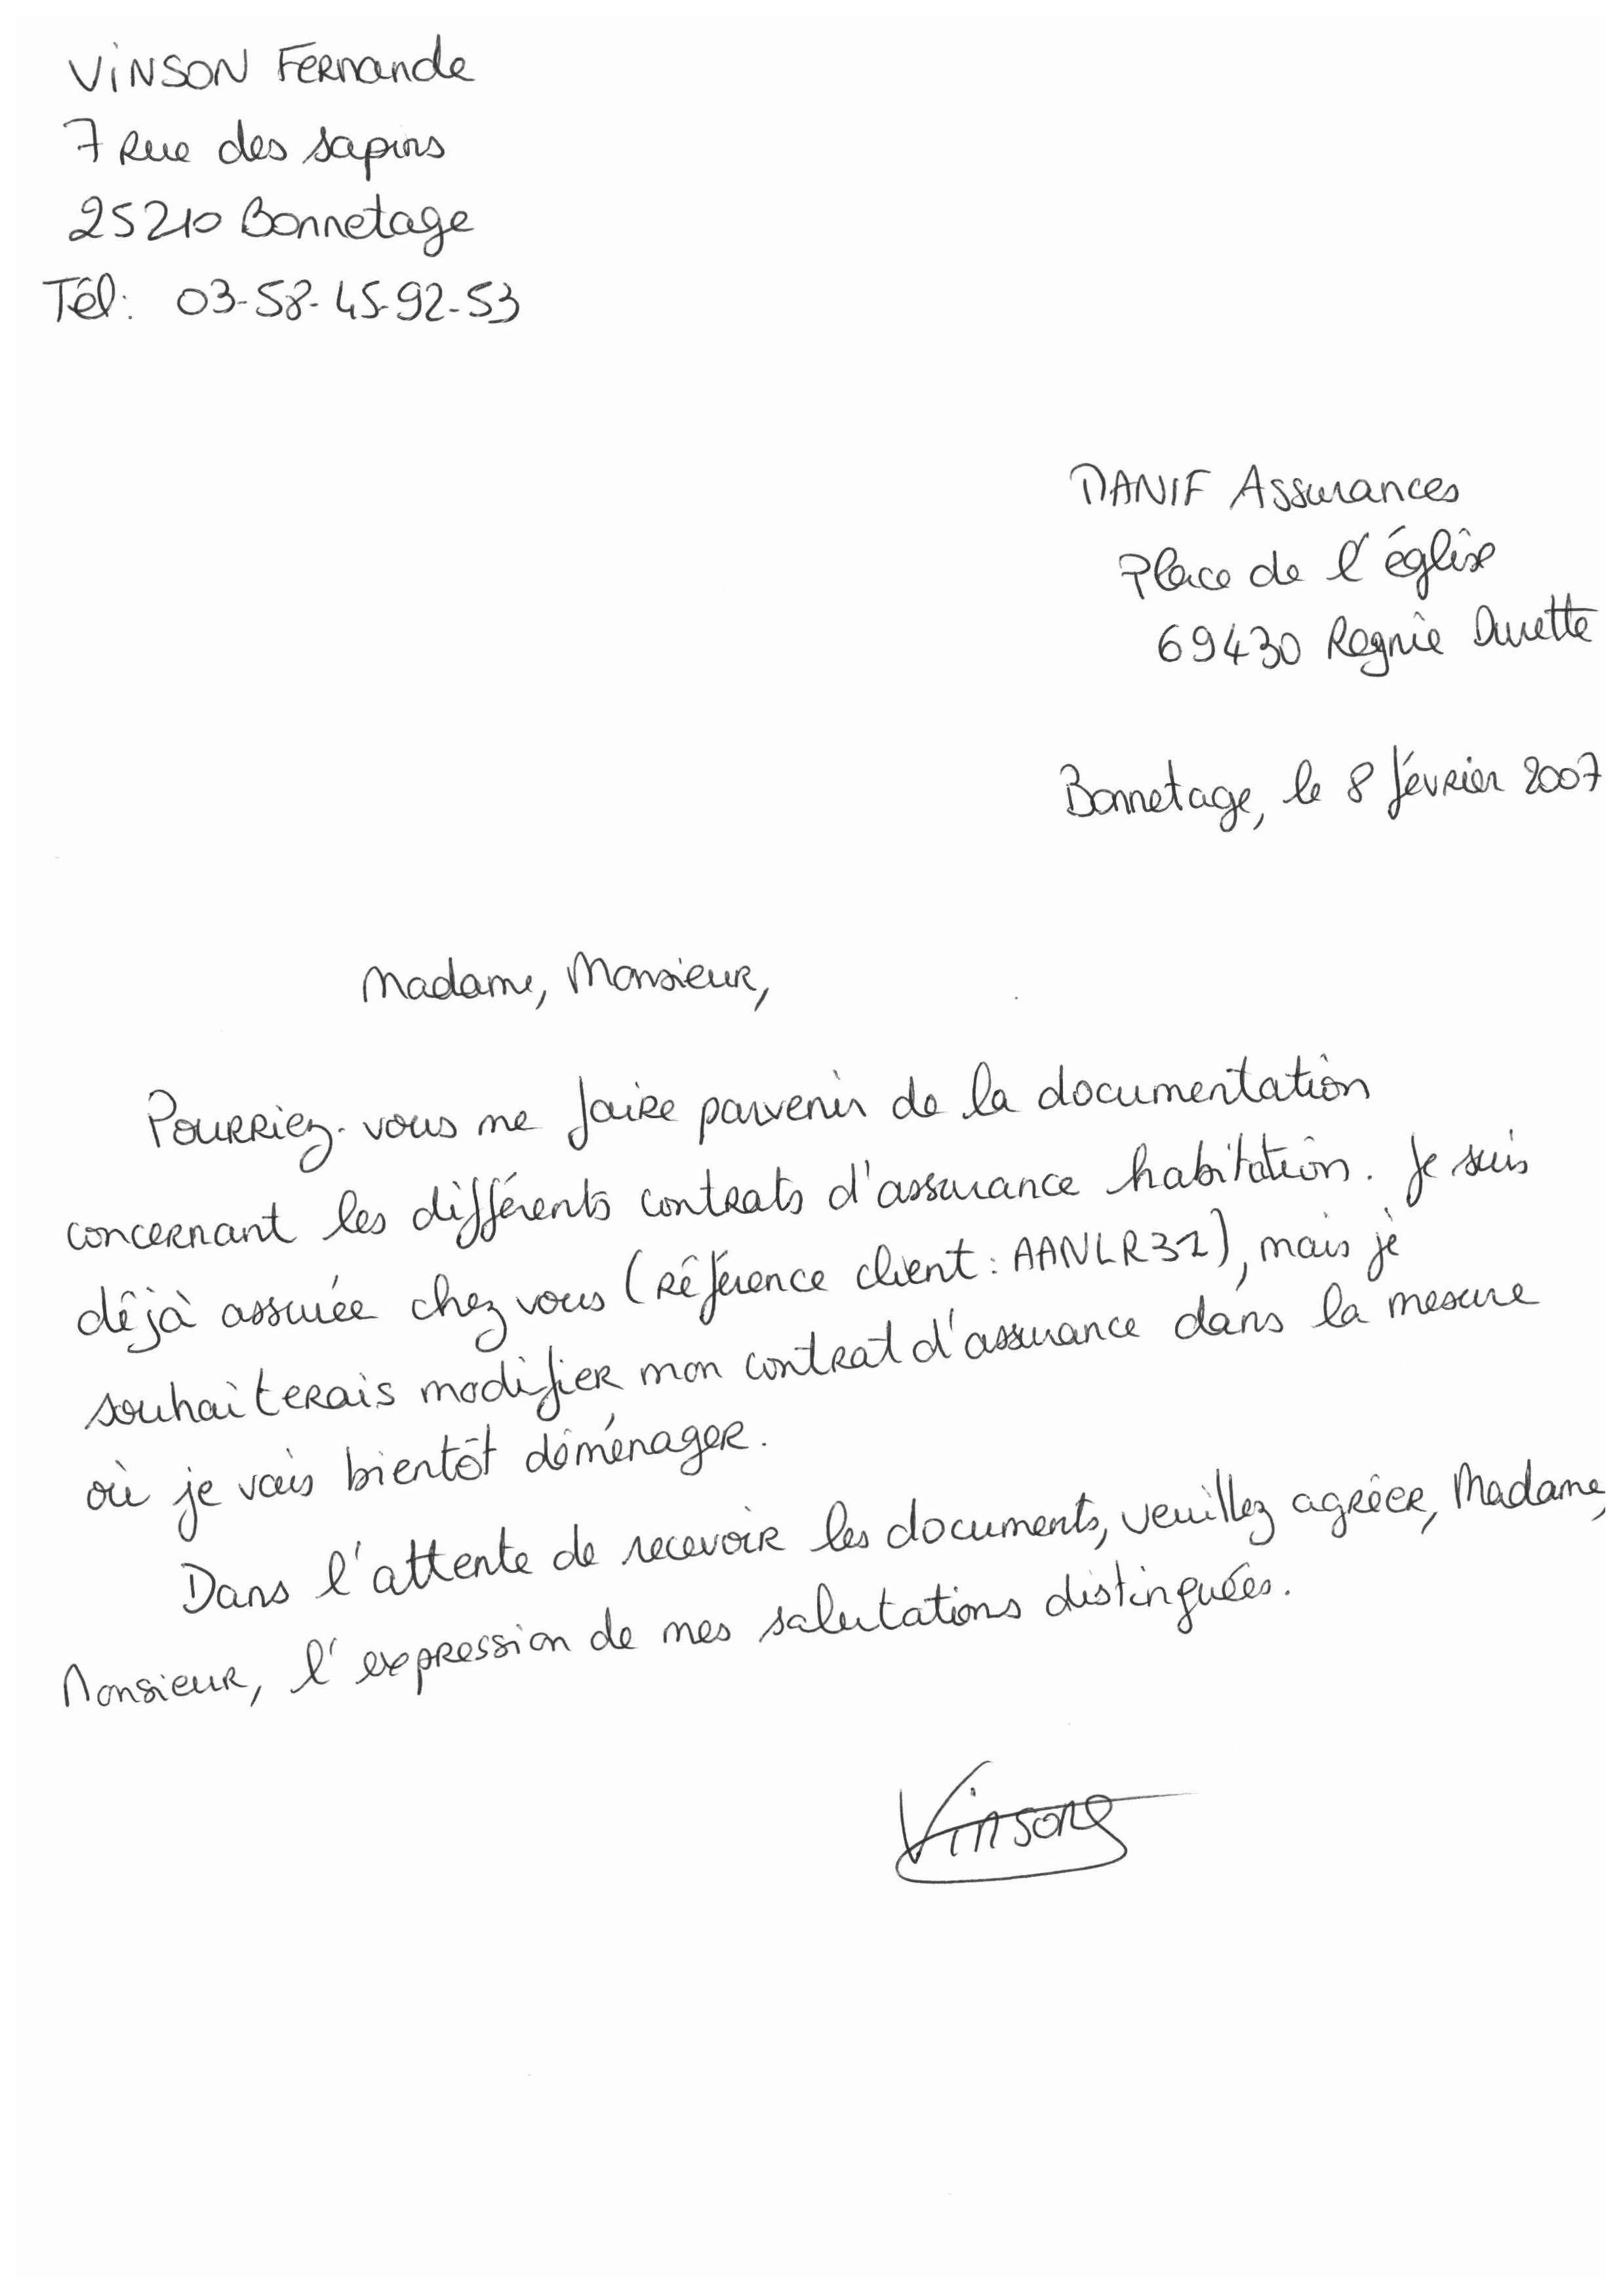 VINSON Fernande
7 Rue des sapins
25210 Bonnetage
Tél: 03-58-45-92-53
DANIF Assurances
Place de l'église
69430 Regnie Durette
Bonnetage, le 8 février 2007
Madame, Monsieur,
Pourriez-vous me faire parvenir de la documentation
concernant les différents contrats d'assurance habitation. Je suis
déjà assurée chez vous (référence client : AANLR31), mais je
souhaiterais modifier mon contrat d'assurance dans la mesure
où je vais bientôt déménager.
Dans l'attente de recevoir les documents, veuillez agréer, Madame,
Monsieur, l'expression de mes salutations distinguées.
Vinson